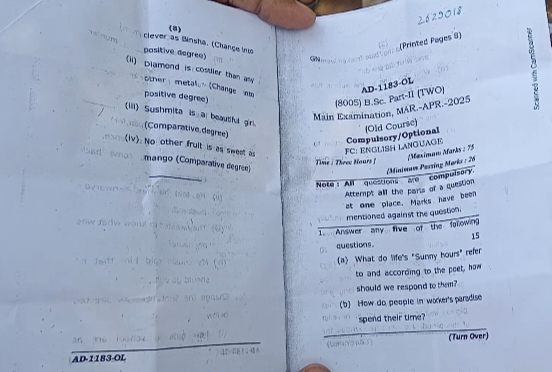 (8)
clever as Binsha. (Change into
positive degree)
(ii) Diamond is costlier than any
other metal. (Change into
positive degree)
(iii) Sushmita is a beautiful girl.
(Comparative degree)
(iv) No other fruit is as sweet as
mango (Comparative degree)
AD-1183-OL
2629018
GN
(Printed Pages 8)
AD-1183-OL
(8005) B.Sc. Part-II (TWO)
Main Examination, MAR.-APR.-2025
(Old Course)
Compulsory/Optional
FC: ENGLISH LANGUAGE
Time : Three Hours ]
[Maximum Marks : 75
[Minimum Passing Marks : 26
Note : All questions are compulsory.
Attempt all the parts of a question
at one place. Marks have been
mentioned against the question.
1. Answer any five of the following
questions. 15
(a) What do life's "Sunny hours" refer
to and according to the poet, how
should we respond to them?
(b) How do people in worker's paradise
spend their time?
(Turn Over)
Scanned with CamScanner